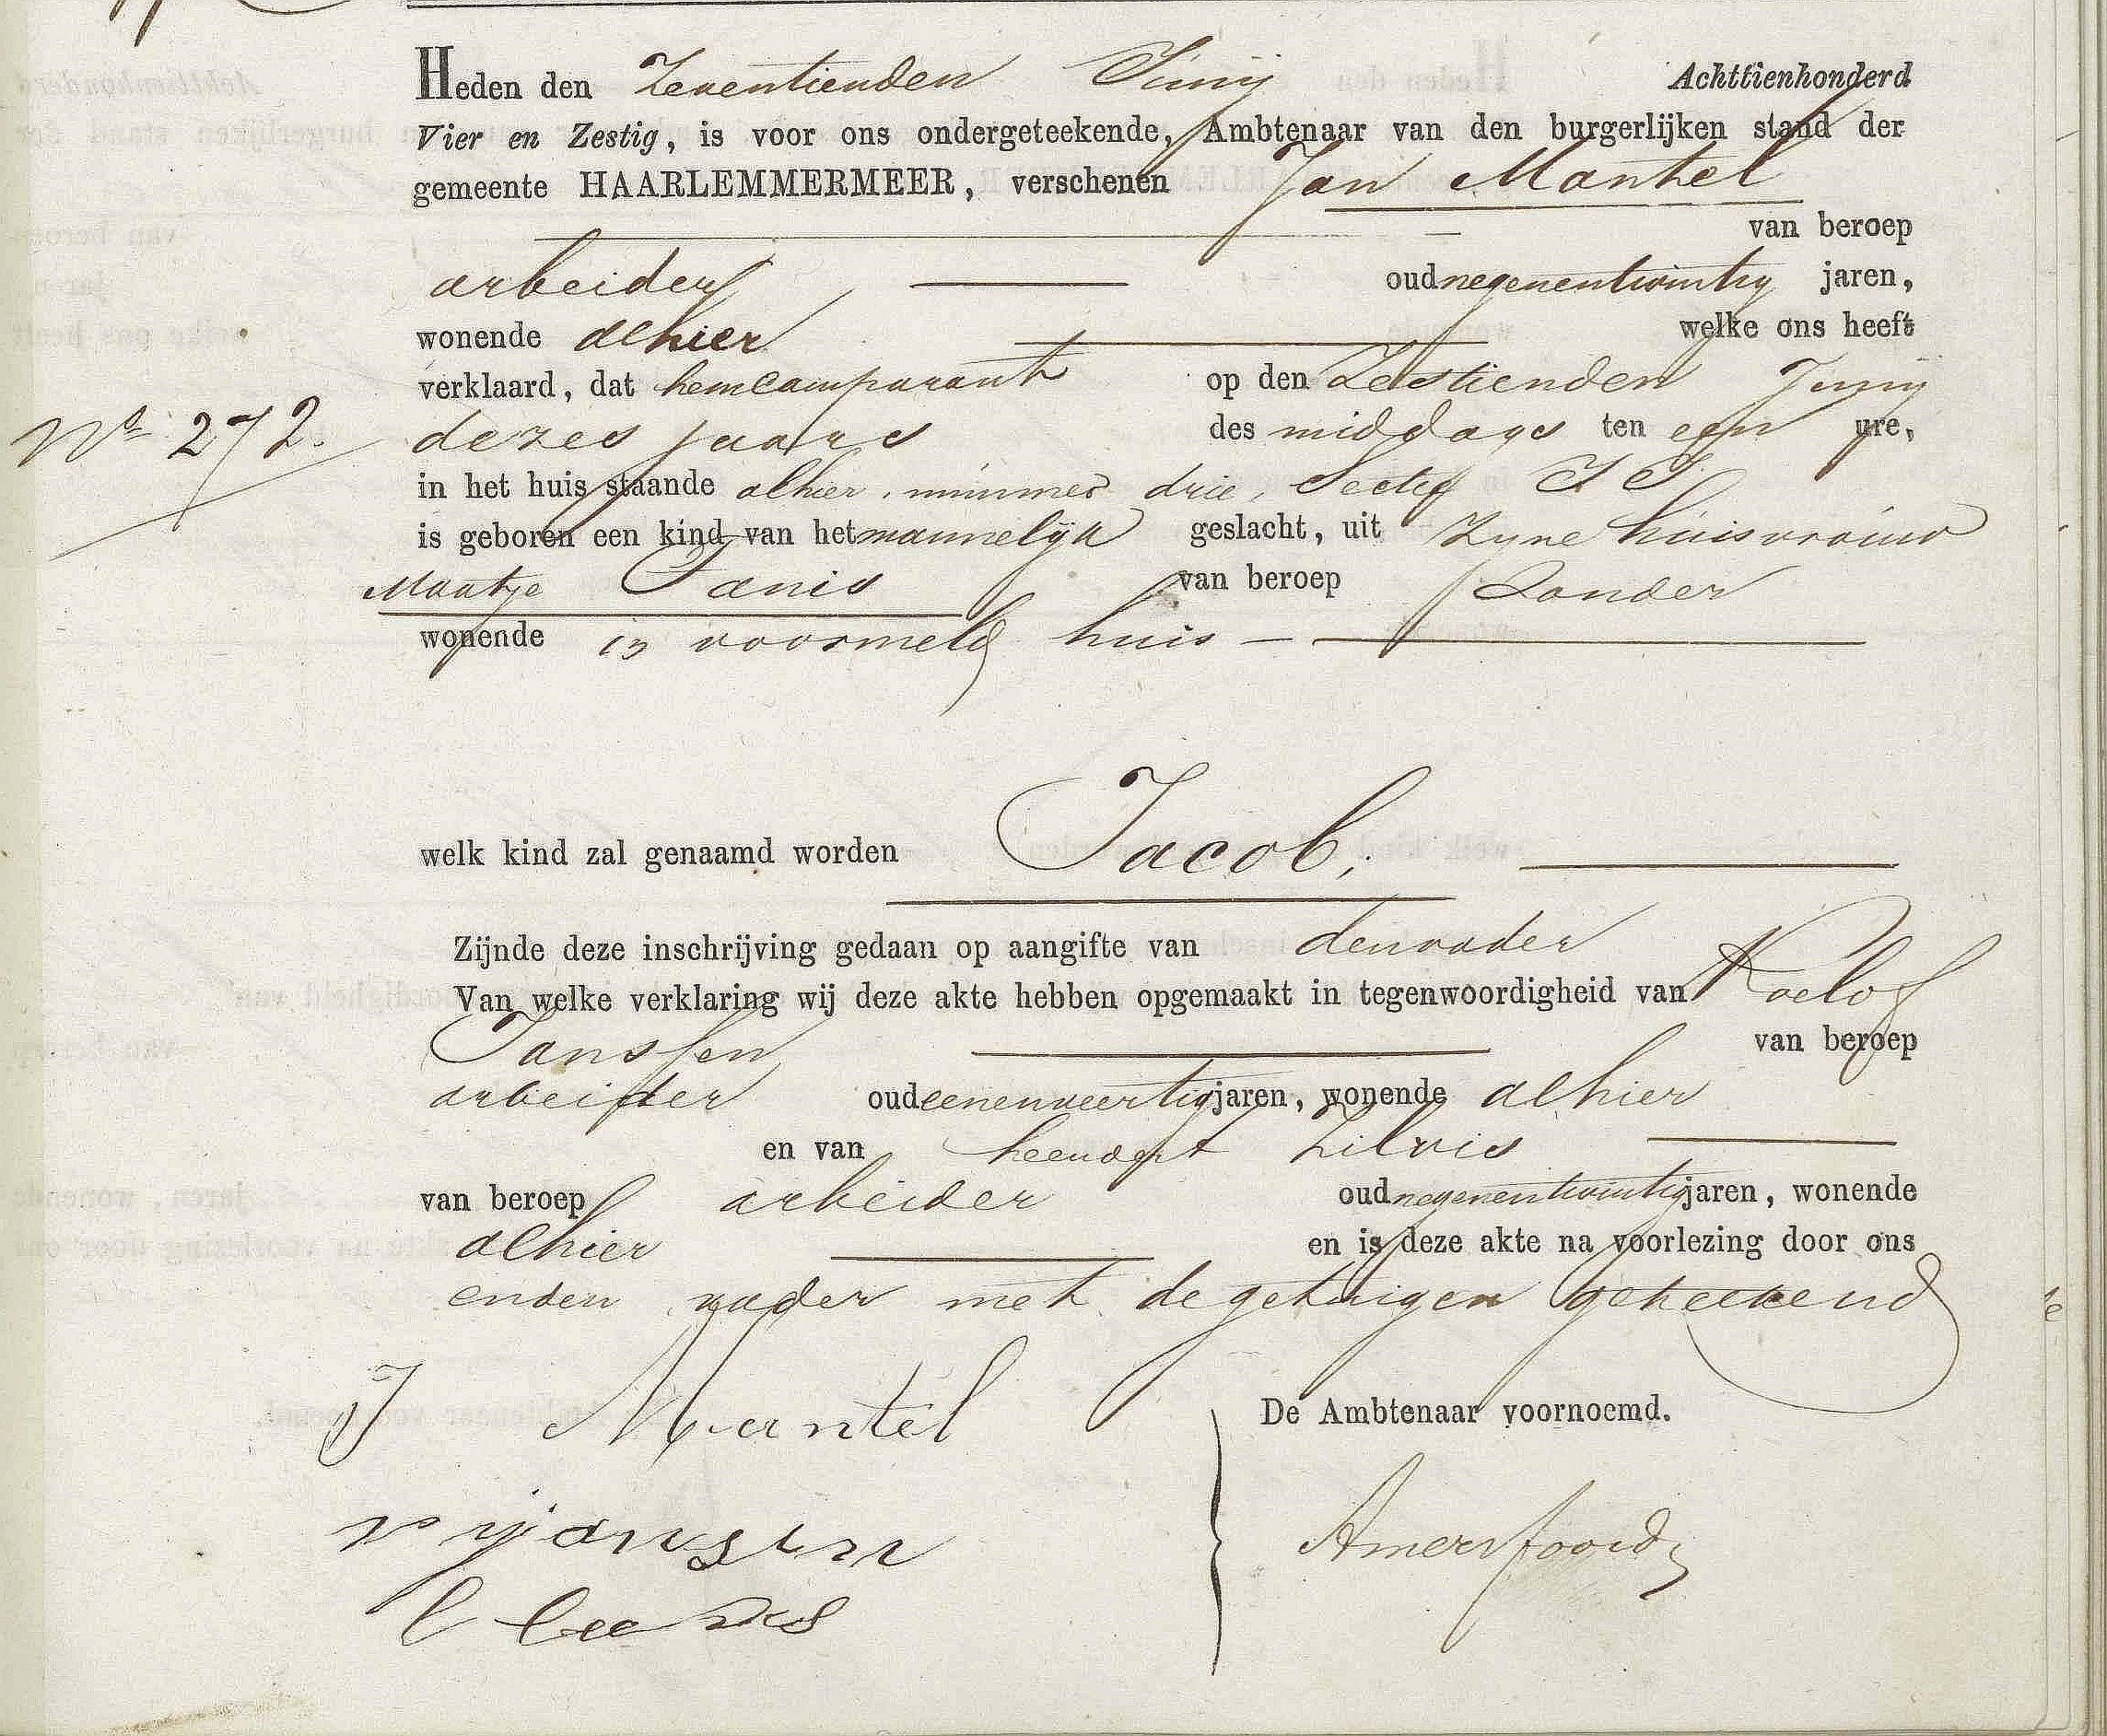 Heden den Zeventienden Junij Achttienhonderd
Vier en Zestig, is voor ons ondergeteekende, Ambtenaar van den burgerlijken stand der
gemeente HAARLEMMERMEER, verschenen Jan Mantel
van beroep
arbeider oud negenentwintig jaren,
wonende alhier welke ons heeft
verklaard, dat hem comparant op den Zestienden Junij
No 272. dezes jaars des middags ten een ure,
in het huis staande alhier, nummer drie, Sectie
is geboren een kind van het mannelijk geslacht, uit zyne huisvrouw
Maatje Tanis van beroep zonder
wonende in voormeld huis
welk kind zal genaamd worden Jacob,
Zijnde deze inschrijving gedaan op aangifte van den vader
Van welke verklaring wij deze akte hebben opgemaakt in tegenwoordigheid van Roelof
Janssen van beroep
arbeider oud eenenveertig jaren, wonende alhier
en van Leendert Zilvis
van beroep arbeider oud negenentwintig jaren, wonende
alhier en is deze akte na voorlezing door ons
en den vader met de getuigen geteekend
J Mantel
De Ambtenaar voornoemd.
Amersfoordt